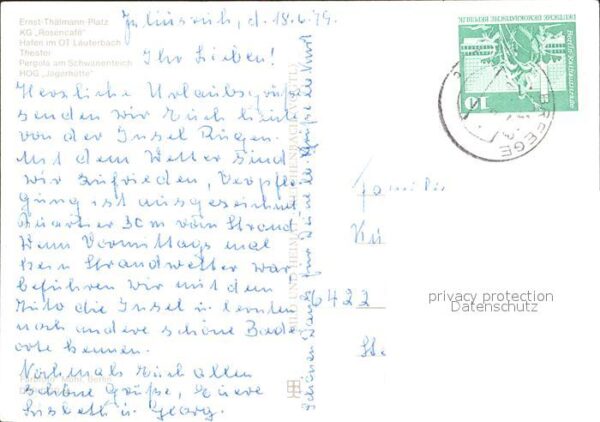 Ernst-Thälmann-Platz
KG „Rosencafé"
Hafen im OT Lauterbach
Theater
Pergola am Schwanenteich
HOG „Jägerhütte"
Juliusruh, d. 18.6.79.
Ihr Lieben!
Herzliche Urlaubsgrüsse
senden wir Euch heute
von der Insel Rügen.
Mit dem Wetter sind
wir zufrieden, Verpfle
gung ist ausgezeichnet
Quartier 30m vom Strand
Wenn Vormittags mal
kein Strandwetter war
befuhren wir mit dem
Auto die Insel u. lernten
noch andere schöne Bade
orte kennen.
Nochmals Euch allen
schöne Grüße, Eure
Lisbeth u. Georg.
Schönen Dank für Deine lb. Grüße
BILD UND HEIMAT REICHENBACH
DEUTSCHE DEMOKRATISCHE REPUBLIK
10
BREEGE
Famili
6422
privacy protection
Datenschutz